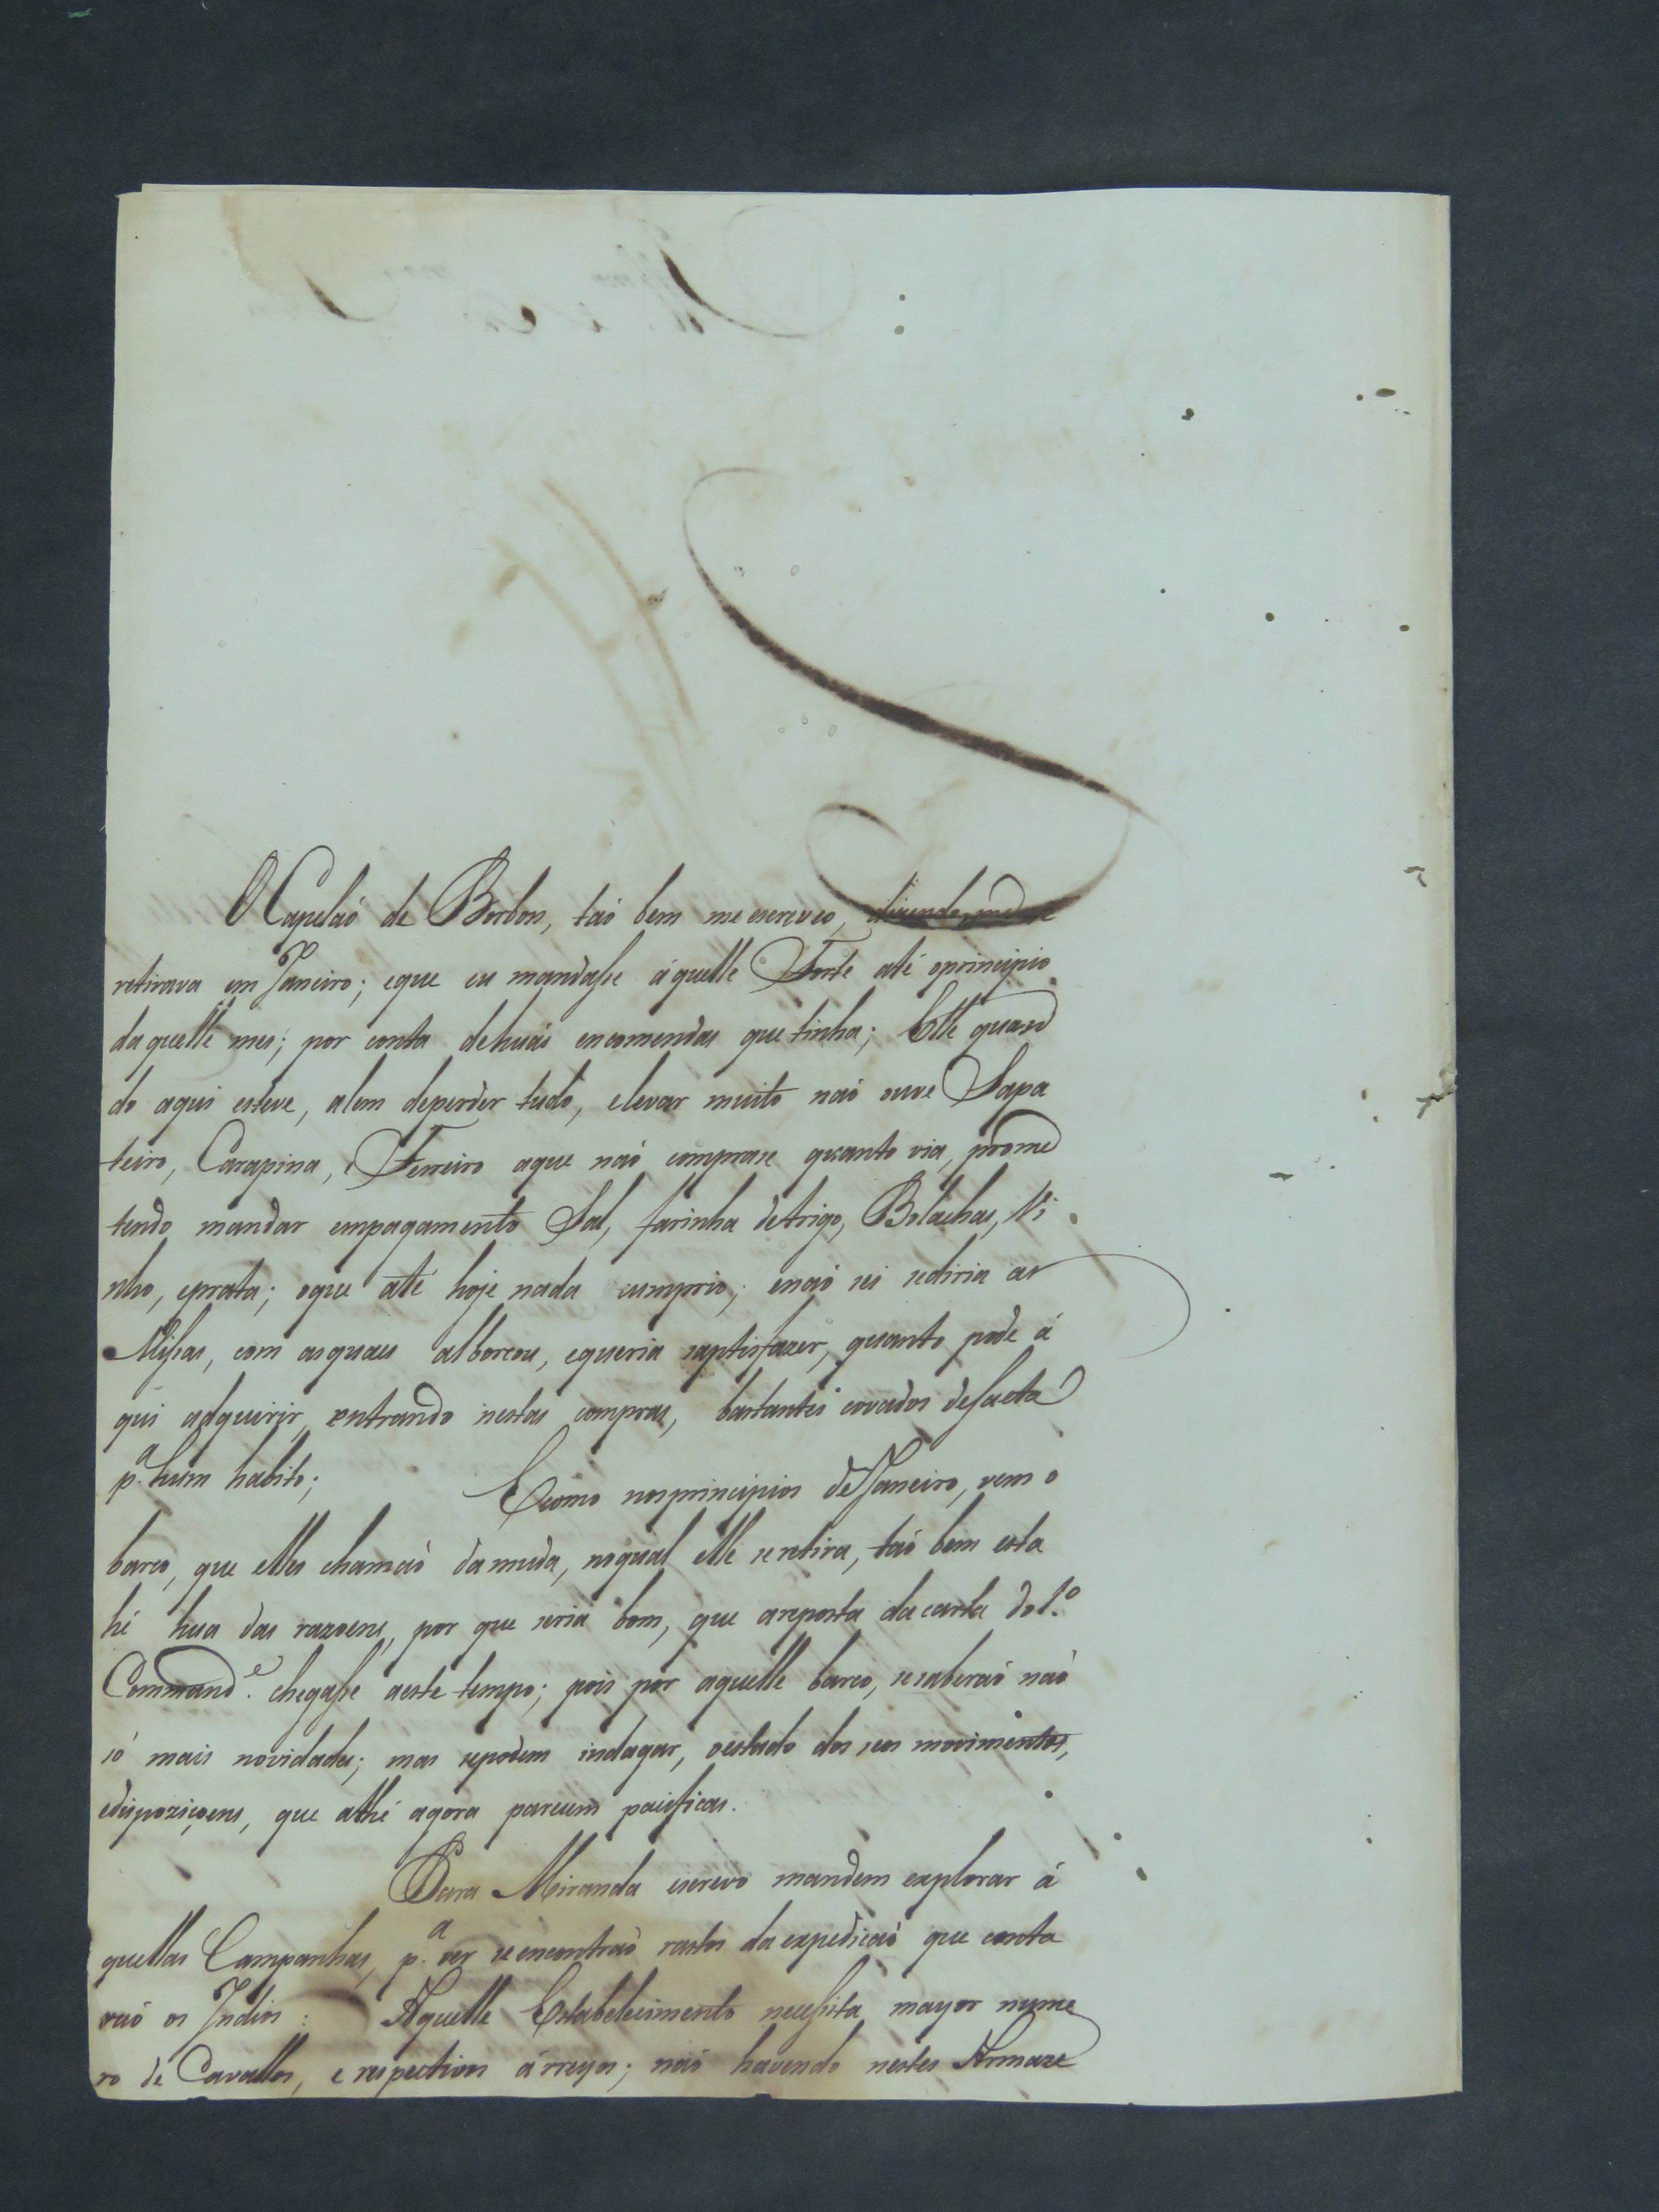 O Capelaõ de Borbon, taõ bem me escreveo, dizendo, me se
retirava em Janeiro; eque eu mandaſse áquelle Forte até oprincipio
daquelle mes; por conta dehuãs encomendas que tinha; Elle quan
do aqui esteve, alem deperder tudo, elevar muito naõ ouve Sapa
teiro, Carapina, Ferreiro aque naõ comprase quanto via, prome
tendo mandar empagamento Sal, farinha detrigo, Bolachas, Vi
nho, eprata; oque até hoje nada cumprio; enaõ sei sediria as
Miſsas, com asquaes alborcou, equeria saptisfazer, quanto pode á
qui adquerir, entrando nestas compras, bastantes covados desaeta
p.ª hum habito; Ecomo nosprincipios deJaneiro, vem o
barco, que elles chamaõ damuda, noqual elle seretira, taõ bem esta
hé hua das razoens, por que seria bom, que aresposta dacarta do1.º
Command.e chegaſse aeste tempo; pois por aquelle barco, sesaberaõ naõ
só mais novidades; mas sepodem indagar, oestado dos seos movimentos,
edispoziçoens, que athé agora parecem pacificas.
Para Miranda escrevo mandem explorar á
quellas Campanhas, p.ª ver seencontraõ rastos daexpediçaõ que conta
raõ os Indios: Aquelle Estabelecimento neceſsita mayor nume
ro de Cavallos, e respectivos árreyos; naõ havendo nestes Armaze